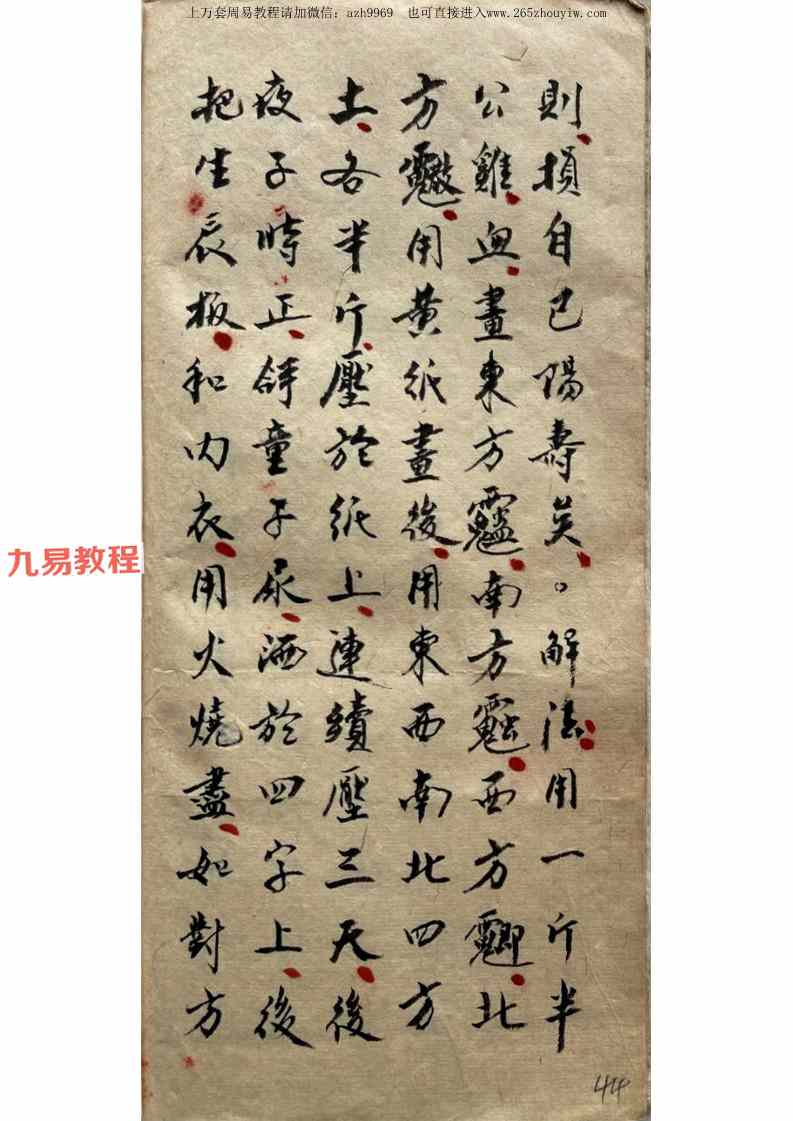 上万套周易教程请加微信：azh9969 也可直接进入www.265zhouyiw.com
則損自己陽壽矣。解法用一斤半
公雞血畫東方 南方 西方 北
方 用黃紙畫後用東西南北四方
土各半斤壓於紙上連續壓三天後
夜子時正 童子尿洒於四字上後
把生辰板和內衣用火燒盡如對方
九易教程
44